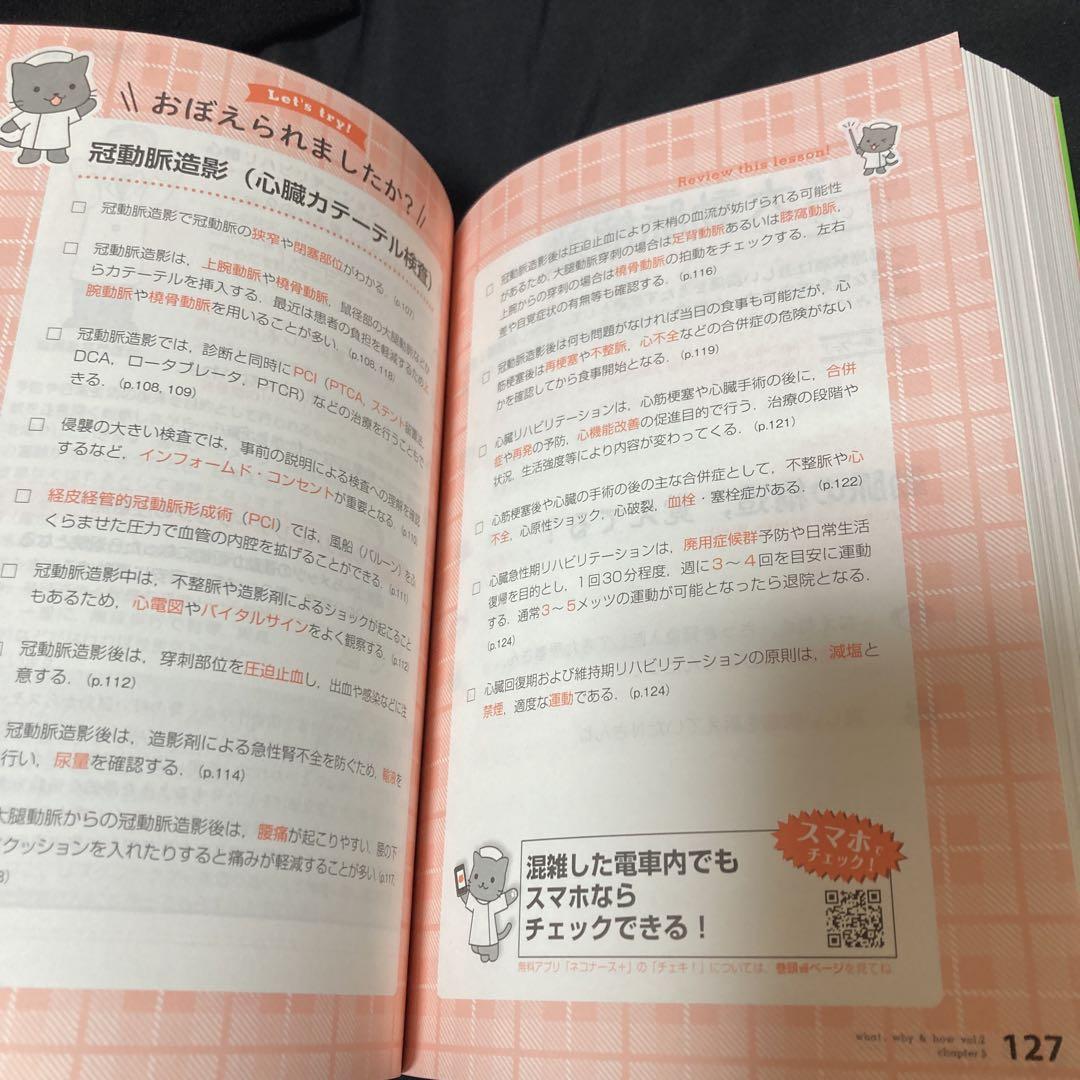 Let's try!
\\ おぼえられましたか? //
冠動脈造影（心臓カテーテル検査）
□ 冠動脈造影で冠動脈の狭窄や閉塞部位がわかる．（p.107）
□ 冠動脈造影は，上腕動脈や橈骨動脈，鼠径部の大腿動脈などか
らカテーテルを挿入する．最近は患者の負担を軽減するため上
腕動脈や橈骨動脈を用いることが多い．（p.108, 118）
□ 冠動脈造影では，診断と同時にPCI（PTCA，ステント留置法，
DCA，ロータブレータ，PTCR）などの治療を行うこともで
きる．（p.108, 109）
□ 侵襲の大きい検査では，事前の説明による検査への理解を確認
するなど，インフォームド・コンセントが重要となる．（p.110）
□ 経皮経管的冠動脈形成術（PCI）では，風船（バルーン）をふ
くらませた圧力で血管の内腔を拡げることができる．（p.111）
□ 冠動脈造影中は，不整脈や造影剤によるショックが起こること
もあるため，心電図やバイタルサインをよく観察する．（p.112）
□ 冠動脈造影後は，穿刺部位を圧迫止血し，出血や感染などに注
意する．（p.112）
冠動脈造影後は，造影剤による急性腎不全を防ぐため，輸液を
行い，尿量を確認する．（p.114）
大腿動脈からの冠動脈造影後は，腰痛が起こりやすい．腰の下
クッションを入れたりすると痛みが軽減することが多い（p.117,
8）
Review this lesson!
□ 冠動脈造影後は圧迫止血により末梢の血流が妨げられる可能性
があるため，大腿動脈穿刺の場合は足背動脈あるいは膝窩動脈，
上腕からの穿刺の場合は橈骨動脈の拍動をチェックする．左右
差や自覚症状の有無等も確認する．（p.116）
□ 冠動脈造影後は何も問題がなければ当日の食事も可能だが，心
筋梗塞後は再梗塞や不整脈，心不全などの合併症の危険がない
かを確認してから食事開始となる．（p.119）
□ 心臓リハビリテーションは，心筋梗塞や心臓手術の後に，合併
症や再発の予防，心機能改善の促進目的で行う．治療の段階や
状況，生活強度等により内容が変わってくる．（p.121）
□ 心筋梗塞後や心臓の手術の後の主な合併症として，不整脈や心
不全，心原性ショック，心破裂，血栓・塞栓症がある．（p.122）
□ 心臓急性期リハビリテーションは，廃用症候群予防や日常生活
復帰を目的とし，1回30分程度，週に3～4回を目安に運動
する．通常3～5メッツの運動が可能となったら退院となる．
（p.124）
□ 心臓回復期および維持期リハビリテーションの原則は，減塩と
禁煙，適度な運動である．（p.124）
スマホで
チェック！
混雑した電車内でも
スマホなら
チェックできる！
無料アプリ「ネコナース+」の「チェキ！」については、巻頭ページを見てね
what, why & how vol.2
chapter 5
127